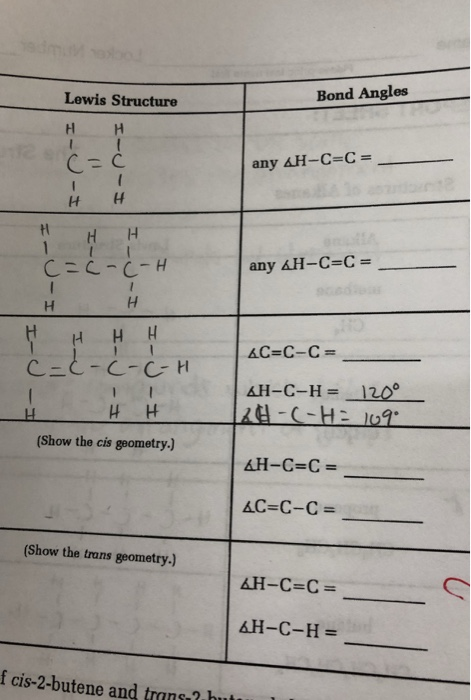 Lewis Structure
Bond Angles
H H
C = C
H H
any ∡H–C=C =
H H H
C = C - C - H
H H
any ∡H–C=C =
H H H H
C = C - C - C - H
H H H
∡C=C–C =
∡H–C–H = 120°
∡H - C - H = 109°
(Show the cis geometry.)
∡H–C=C =
∡C=C–C =
(Show the trans geometry.)
∡H–C=C =
∡H–C–H =
f cis-2-butene and trans-2-